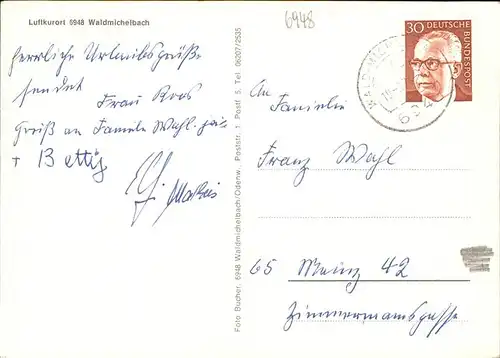 Luftkurort 6948 Waldmichelbach
6948
30 DEUTSCHE
BUNDESPOST
Herrliche Urlaubsgrüße
sendet
Frau Roos
Gruß an Familie Wahl
+ Bettig
Foto Bucher, 6948 Waldmichelbach/Odenw. Poststr. 1 Postf. 5 Tel. 06207/2535
An
Familie
Franz Wahl
65 Mainz 42
Zimmermannsgasse